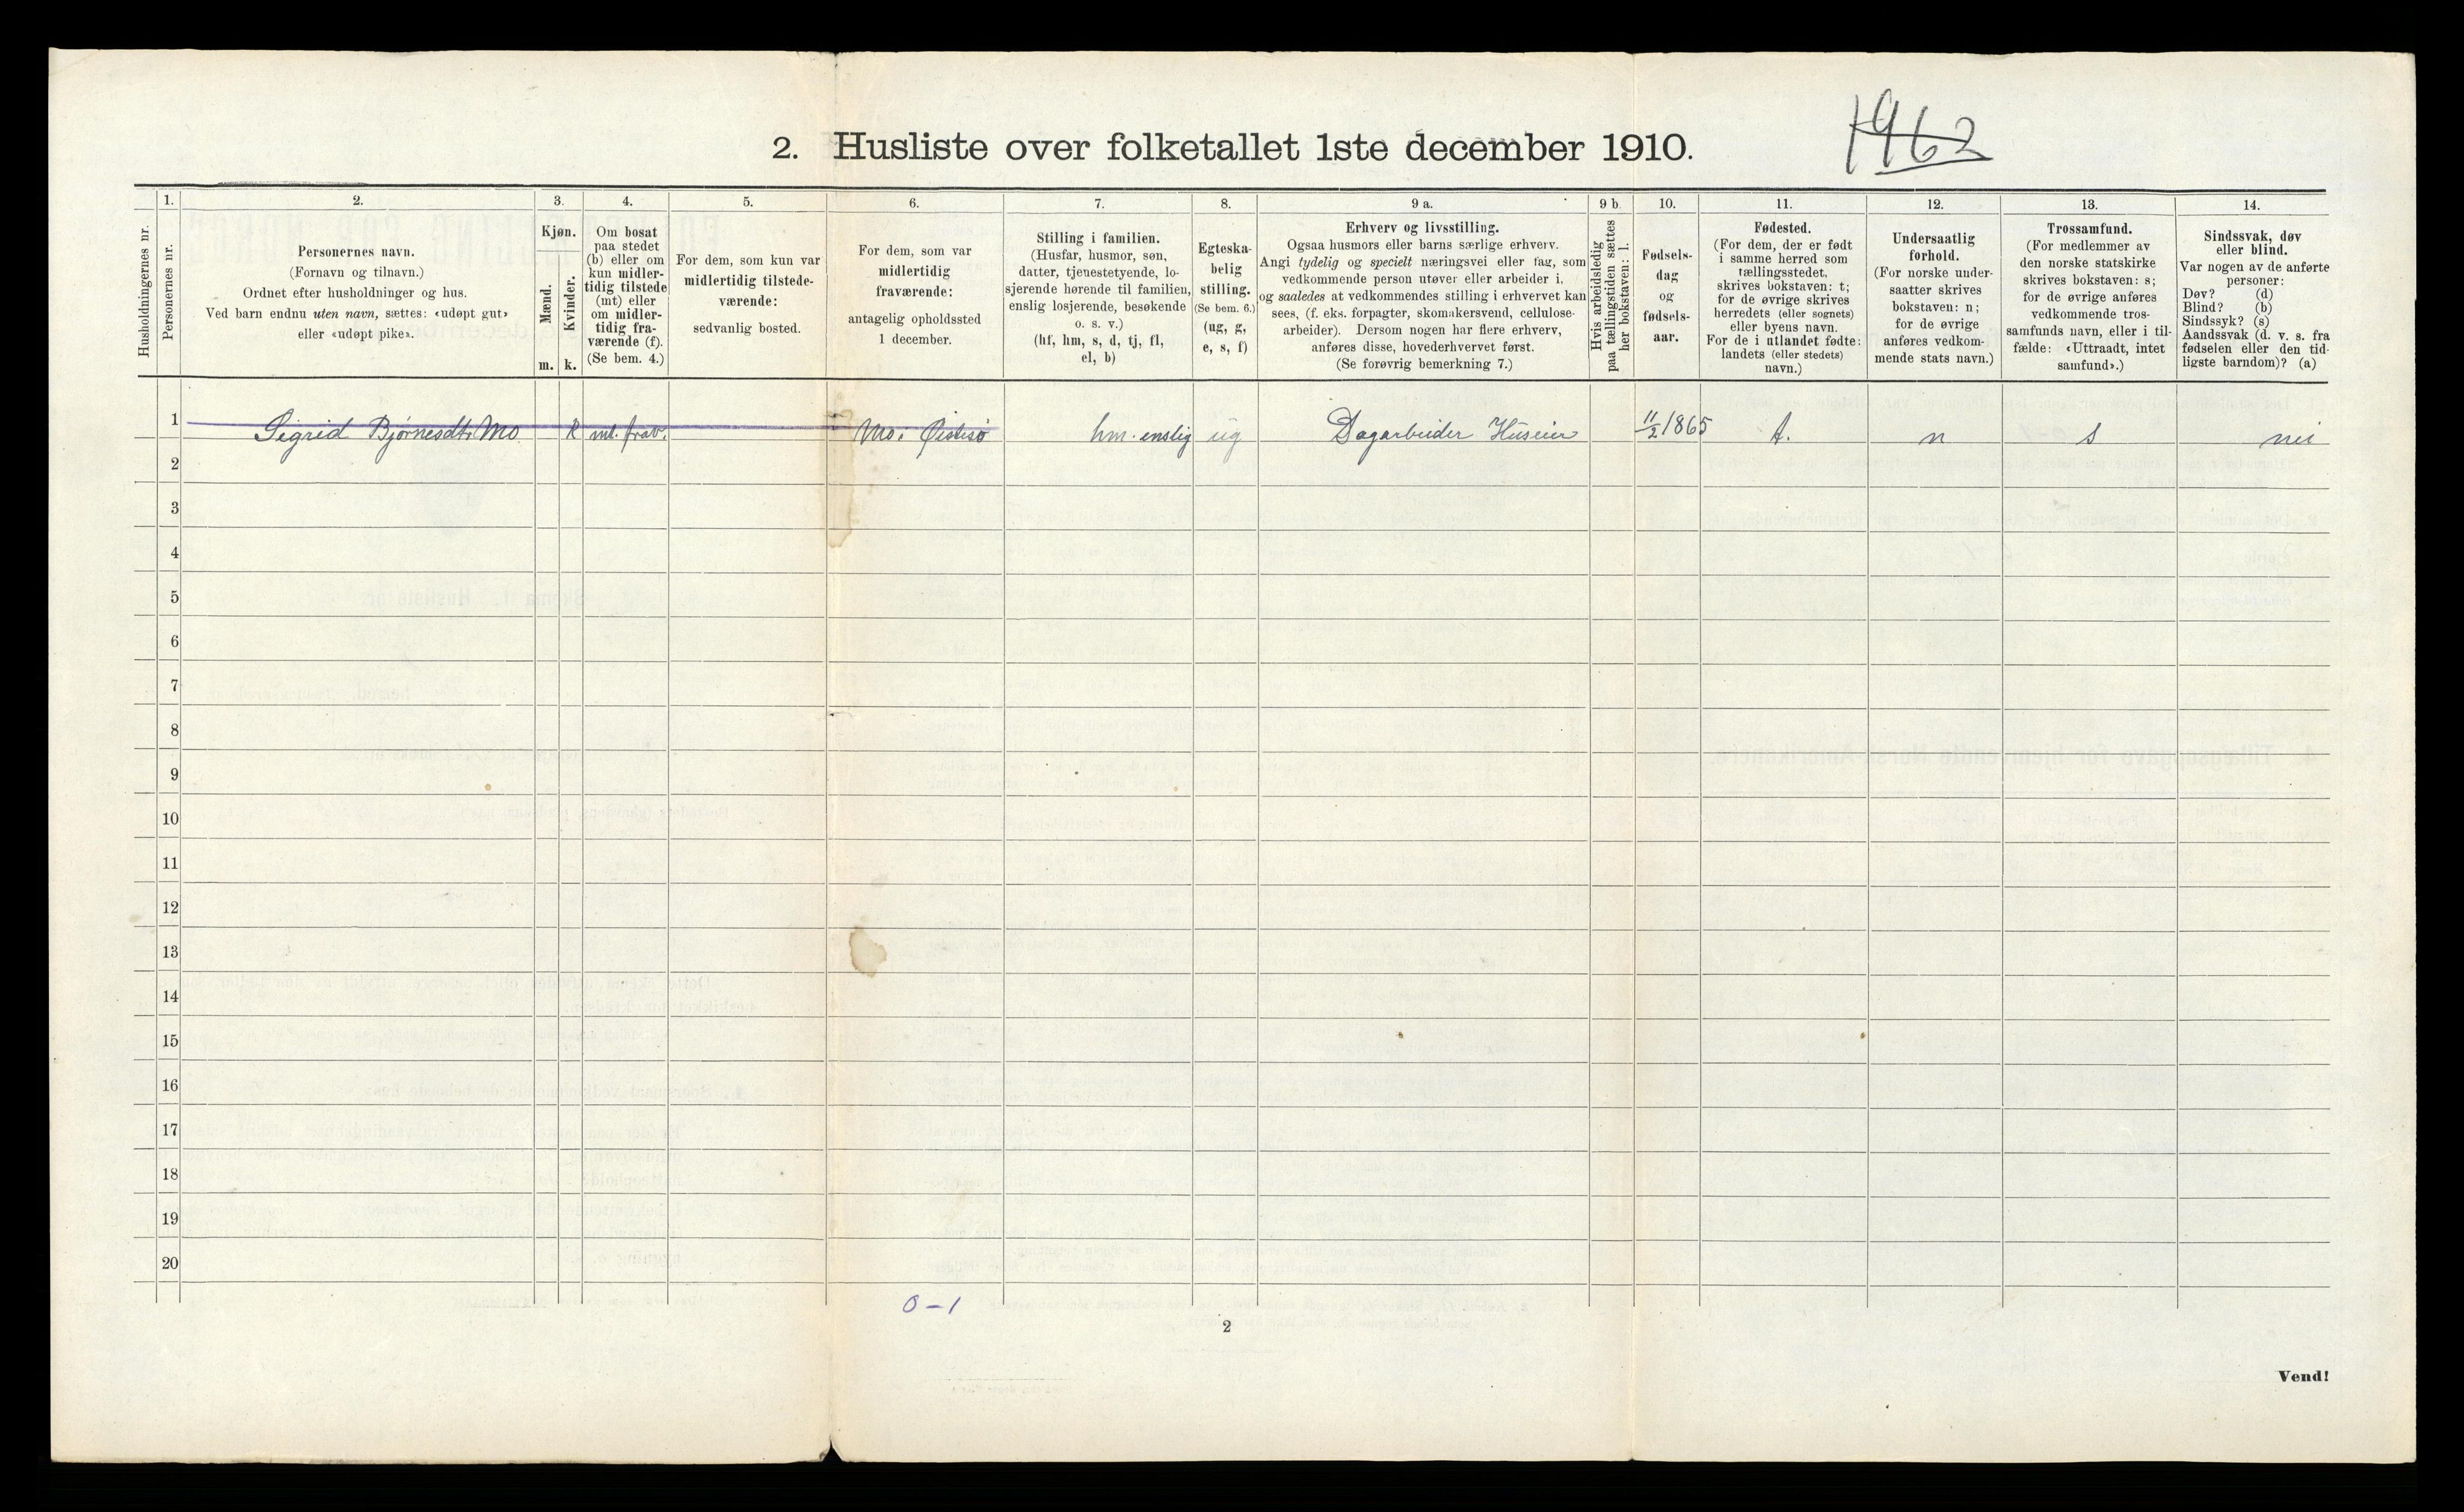 2. Husliste over folketallet 1ste december 1910.
1962
Husholdningernes nr.
1.
Personernes nr.
2.
Personernes navn.
(Fornavn og tilnavn.)
Ordnet efter husholdninger og hus.
Ved barn endnu uten navn, sættes: «udøpt gut»
eller «udøpt pike».
3.
Kjøn.
Mænd.
Kvinder.
m.
k.
4.
Om bosat
paa stedet
(b) eller om
kun midler-
tidig tilstede
(mt) eller
om midler-
tidig fra-
værende (f).
(Se bem. 4.)
5.
For dem, som kun var
midlertidig tilstede-
værende:
sedvanlig bosted.
6.
For dem, som var
midlertidig
fraværende:
antagelig opholdssted
1 december.
7.
Stilling i familien.
(Husfar, husmor, søn,
datter, tjenestetyende, lo-
sjerende hørende til familien,
enslig losjerende, besøkende
o. s. v.)
(hf, hm, s, d, tj, fl,
el, b)
8.
Egteska-
belig
stilling.
(Se bem. 6.)
(ug, g,
e, s, f)
9 a.
Erhverv og livsstilling.
Ogsaa husmors eller barns særlige erhverv.
Angi tydelig og specielt næringsvei eller fag, som
vedkommende person utøver eller arbeider i,
og saaledes at vedkommendes stilling i erhvervet kan
sees, (f. eks. forpagter, skomakersvend, cellulose-
arbeider). Dersom nogen har flere erhverv,
anføres disse, hovederhvervet først.
(Se forøvrig bemerkning 7.)
9 b.
Hvis arbeidsledig
paa tællingstiden sættes
her bokstaven: l.
10.
Fødsels-
dag
og
fødsels-
aar.
11.
Fødested.
(For dem, der er født
i samme herred som
tællingsstedet,
skrives bokstaven: t;
for de øvrige skrives
herredets (eller sognets)
eller byens navn.
For de i utlandet fødte:
landets (eller stedets)
navn.)
12.
Undersaatlig
forhold.
(For norske under-
saatter skrives
bokstaven: n;
for de øvrige
anføres vedkom-
mende stats navn.)
13.
Trossamfund.
(For medlemmer av
den norske statskirke
skrives bokstaven: s;
for de øvrige anføres
vedkommende tros-
samfunds navn, eller i til-
fælde: «Uttraadt, intet
samfund».)
14.
Sindssvak, døv
eller blind.
Var nogen av de anførte
personer:
Døv? (d)
Blind? (b)
Sindssyk? (s)
Aandssvak (d. v. s. fra
fødselen eller den tid-
ligste barndom)? (a)
1 Sigrid Bjørnesdtr Mo k mt. frav. Mo i Øistesø hm. enslig ug Dagarbeider Huseier 11/2 1865 t. n s nei
2
3
4
5
6
7
8
9
10
11
12
13
14
15
16
17
18
19
20
0 – 1
2
Vend!